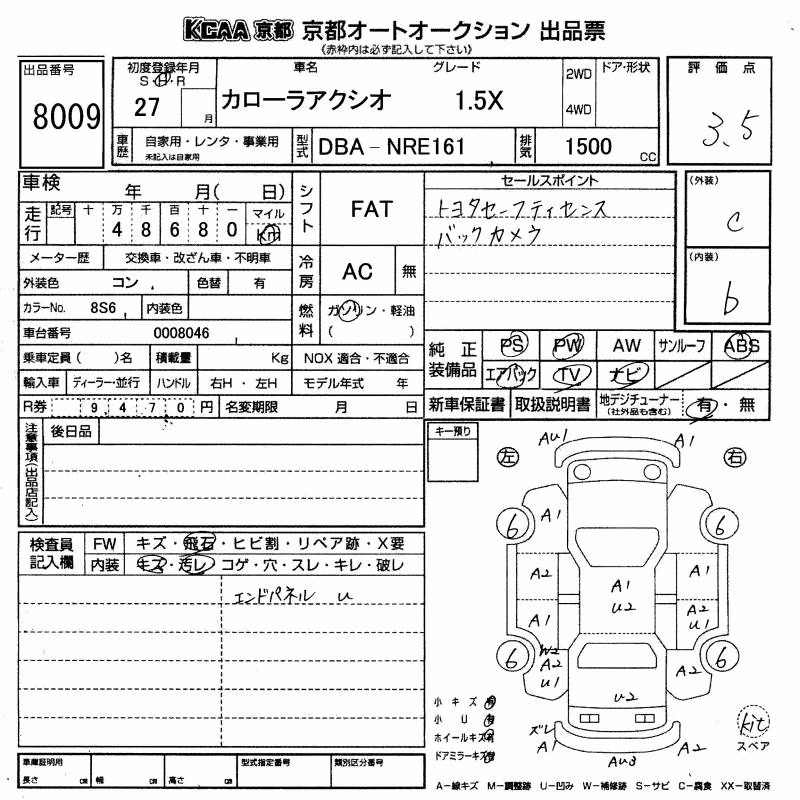 KCAA 京都 京都オートオークション 出品票
《赤枠内は必ず記入して下さい》
出品番号
8009
初度登録年月
S・H・R
27 月
車名
カローラアクシオ
グレード
1.5X
2WD
4WD
ドア・形状
評価点
3.5
車歴
自家用・レンタ・事業用
未記入は自家用
型式
DBA－NRE161
排気
1500 CC
車検 年 月( 日)
走行
記号 十 万 千 百 十 一 マイル
4 8 6 8 0 Km
メーター歴 交換車・改ざん車・不明車
外装色 コン 色替 有
カラーNo. 8S6 内装色
車台番号 0008046
乗車定員( )名 積載量 Kg
輸入車 ディーラー・並行 ハンドル 右H・左H
R券 9,470円 名変期限 月 日
シフト FAT
冷房 AC 無
燃料 ガソリン・軽油
( )
NOX 適合・不適合
モデル年式 年
セールスポイント
トヨタセーフティセンス
バックカメラ
(外装)
C
(内装)
b
純正装備品
PS PW AW サンルーフ ABS
エアバック TV ナビ
新車保証書 取扱説明書 地デジチューナー(社外品も含む) 有・無
注意事項(出品店記入)
後日品
キー預り
検査員記入欄
FW キズ・飛石・ヒビ割・リペア跡・X要
内装 キズ・汚レ・コゲ・穴・スレ・キレ・破レ
エンドパネル u
左 右
AU1 A1
6 A1 6
A2 A1 A1
U2
A1 A2
U1
6 W2 6
A2 A2
U1 U2
ズレ
A1 AU3 A2
小キズ 有
小U 有
ホイールキズ有
ドアミラーキズ有
kit
スペア
車庫証明用
長さ cm 幅 cm 高さ cm
型式指定番号
類別区分番号
A－線キズ M－調整跡 U－凹み W－補修跡 S－サビ C－腐食 XX－取替済